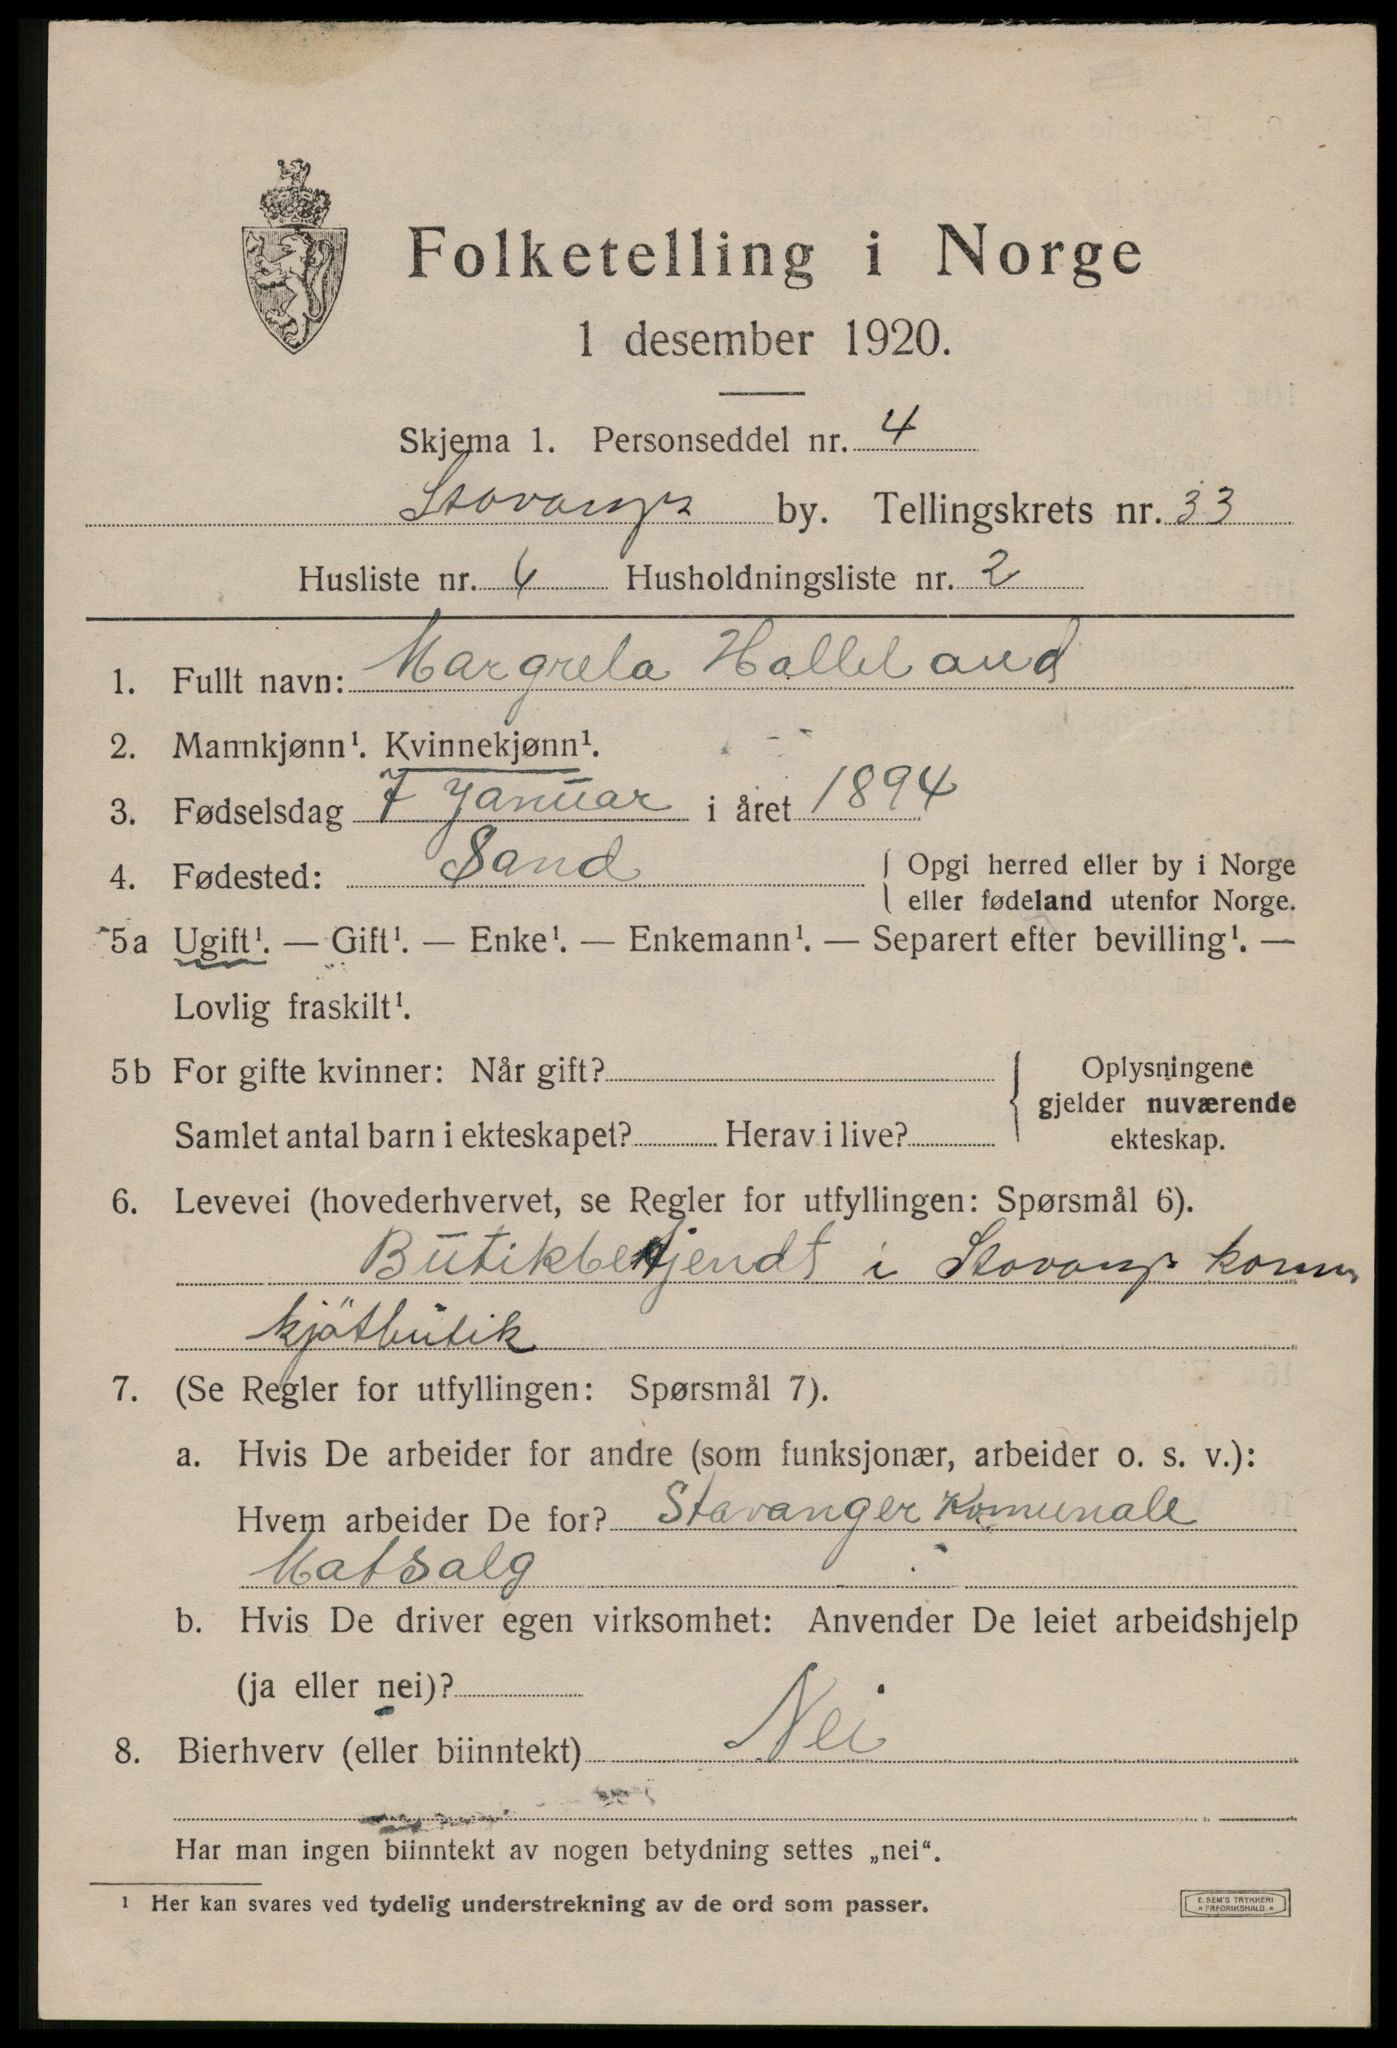 Folketelling i Norge
1 desember 1920.
Skjema 1. Personseddel nr. 4
Stavanger by. Tellingskrets nr. 33
Husliste nr. 6 Husholdningsliste nr. 2
1. Fullt navn: Margreta Halleland
2. Mannkjønn¹. Kvinnekjønn¹.
3. Fødselsdag 7 Januar i året 1894
4. Fødested: Sand { Opgi herred eller by i Norge
eller fødeland utenfor Norge.
5a Ugift¹. — Gift¹. — Enke¹. — Enkemann¹. — Separert efter bevilling¹. —
Lovlig fraskilt¹.
5b For gifte kvinner: Når gift? { Oplysningene
gjelder nuværende
Samlet antal barn i ekteskapet? Herav i live? ekteskap.
6. Levevei (hovederhvervet, se Regler for utfyllingen: Spørsmål 6).
Butikbetjendt i Stavanger komm
kjøtbutik
7. (Se Regler for utfyllingen: Spørsmål 7).
a. Hvis De arbeider for andre (som funksjonær, arbeider o. s. v.):
Hvem arbeider De for? Stavanger Komunale
Matsalg
b. Hvis De driver egen virksomhet: Anvender De leiet arbeidshjelp
(ja eller nei)?
8. Bierhverv (eller biinntekt) Nei
Har man ingen biinntekt av nogen betydning settes „nei“.
¹ Her kan svares ved tydelig understrekning av de ord som passer.
E. SEM'S TRYKKERI
FREDRIKSHALD